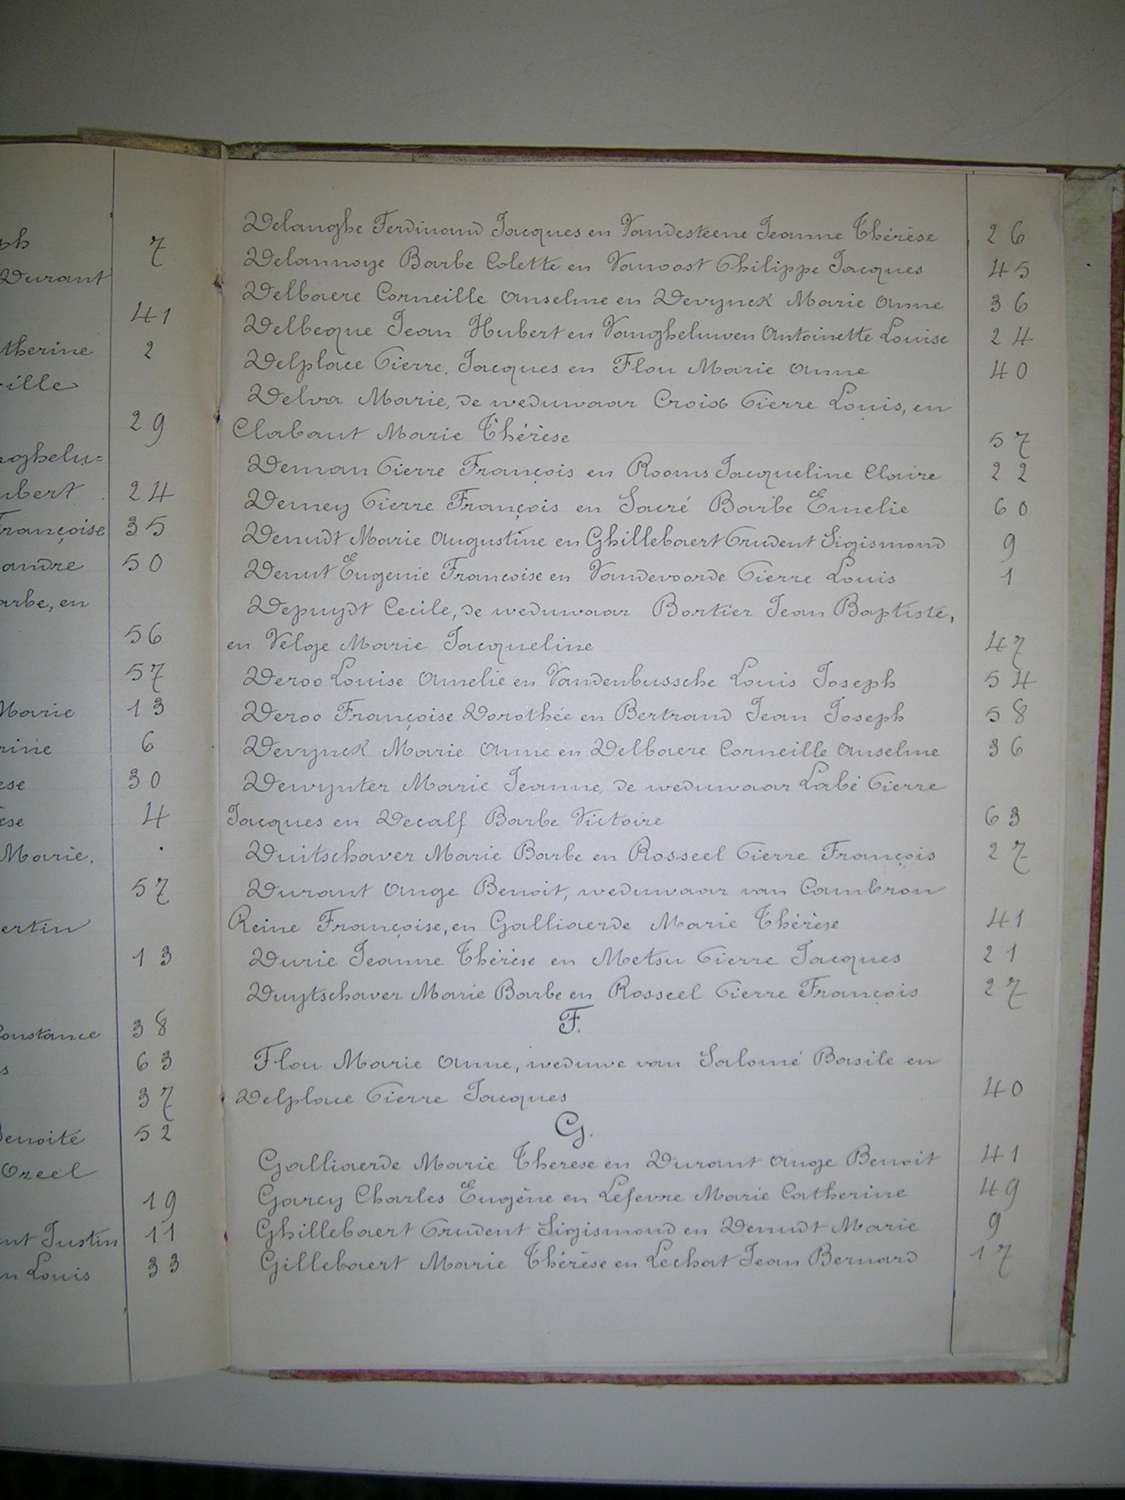 ph 7
Durant
41
therine 2
ville
29
nghelu=
ubert 24
Françoise 35
andre 50
arbe, en
56
57
Marie 13
rine 6
ese 30
ese 4
Marie.
57
ertin
13
Constance 38
s 63
37
Benoité 52
Ozeel
19
nt Justin 11
n Louis 33
Delanghe Ferdinand Jacques en Vandesteene Jeanne Thérèse 26
Delannoye Barbe Colette en Vanoost Philippe Jacques 45
Delbaere Corneille Anselme en Devynck Marie Anne 36
Delbeque Jean Hubert en Vangheluwen Antoinette Louise 24
Delplace Pierre Jacques en Flou Marie Anne 40
Delva Marie, de weduwaar Croix Pierre Louis, en
Clabaut Marie Thérèse 57
Deman Pierre François en Rooms Jacqueline Claire 22
Demey Pierre François en Sacré Barbe Emelie 60
Denudt Marie Augustine en Ghillebaert Prudent Sigismond 9
Denut Eugenie Françoise en Vandevoorde Pierre Louis 1
Depuydt Cecile, de weduwaar Bortier Jean Baptiste,
en Velge Marie Jacqueline 47
Deroo Louise Amelie en Vandenbussche Louis Joseph 54
Deroo Françoise Dorothée en Bertrand Jean Joseph 58
Devynck Marie Anne en Delbaere Corneille Anselme 36
Dewynter Marie Jeanne, de weduwaar Labé Pierre
Jacques en Decalf Barbe Victoire 63
Duitschaver Marie Barbe en Rosseel Pierre François 27
Durant Ange Benoit, weduwaar van Cambron
Reine Françoise, en Galliaerde Marie Thérèse 41
Durie Jeanne Thérèse en Metsu Pierre Jacques 21
Duytschaver Marie Barbe en Rosseel Pierre François 27
F.
Flou Marie Anne, weduwe van Salomé Basile en
Delplace Pierre Jacques 40
G.
Galliaerde Marie Therese en Durant Ange Benoit 41
Garcy Charles Eugène en Lefevre Marie Catherine 49
Ghillebaert Prudent Sigismond en Denudt Marie 9
Gillebaert Marie Thérèse en Lechat Jean Bernard 17